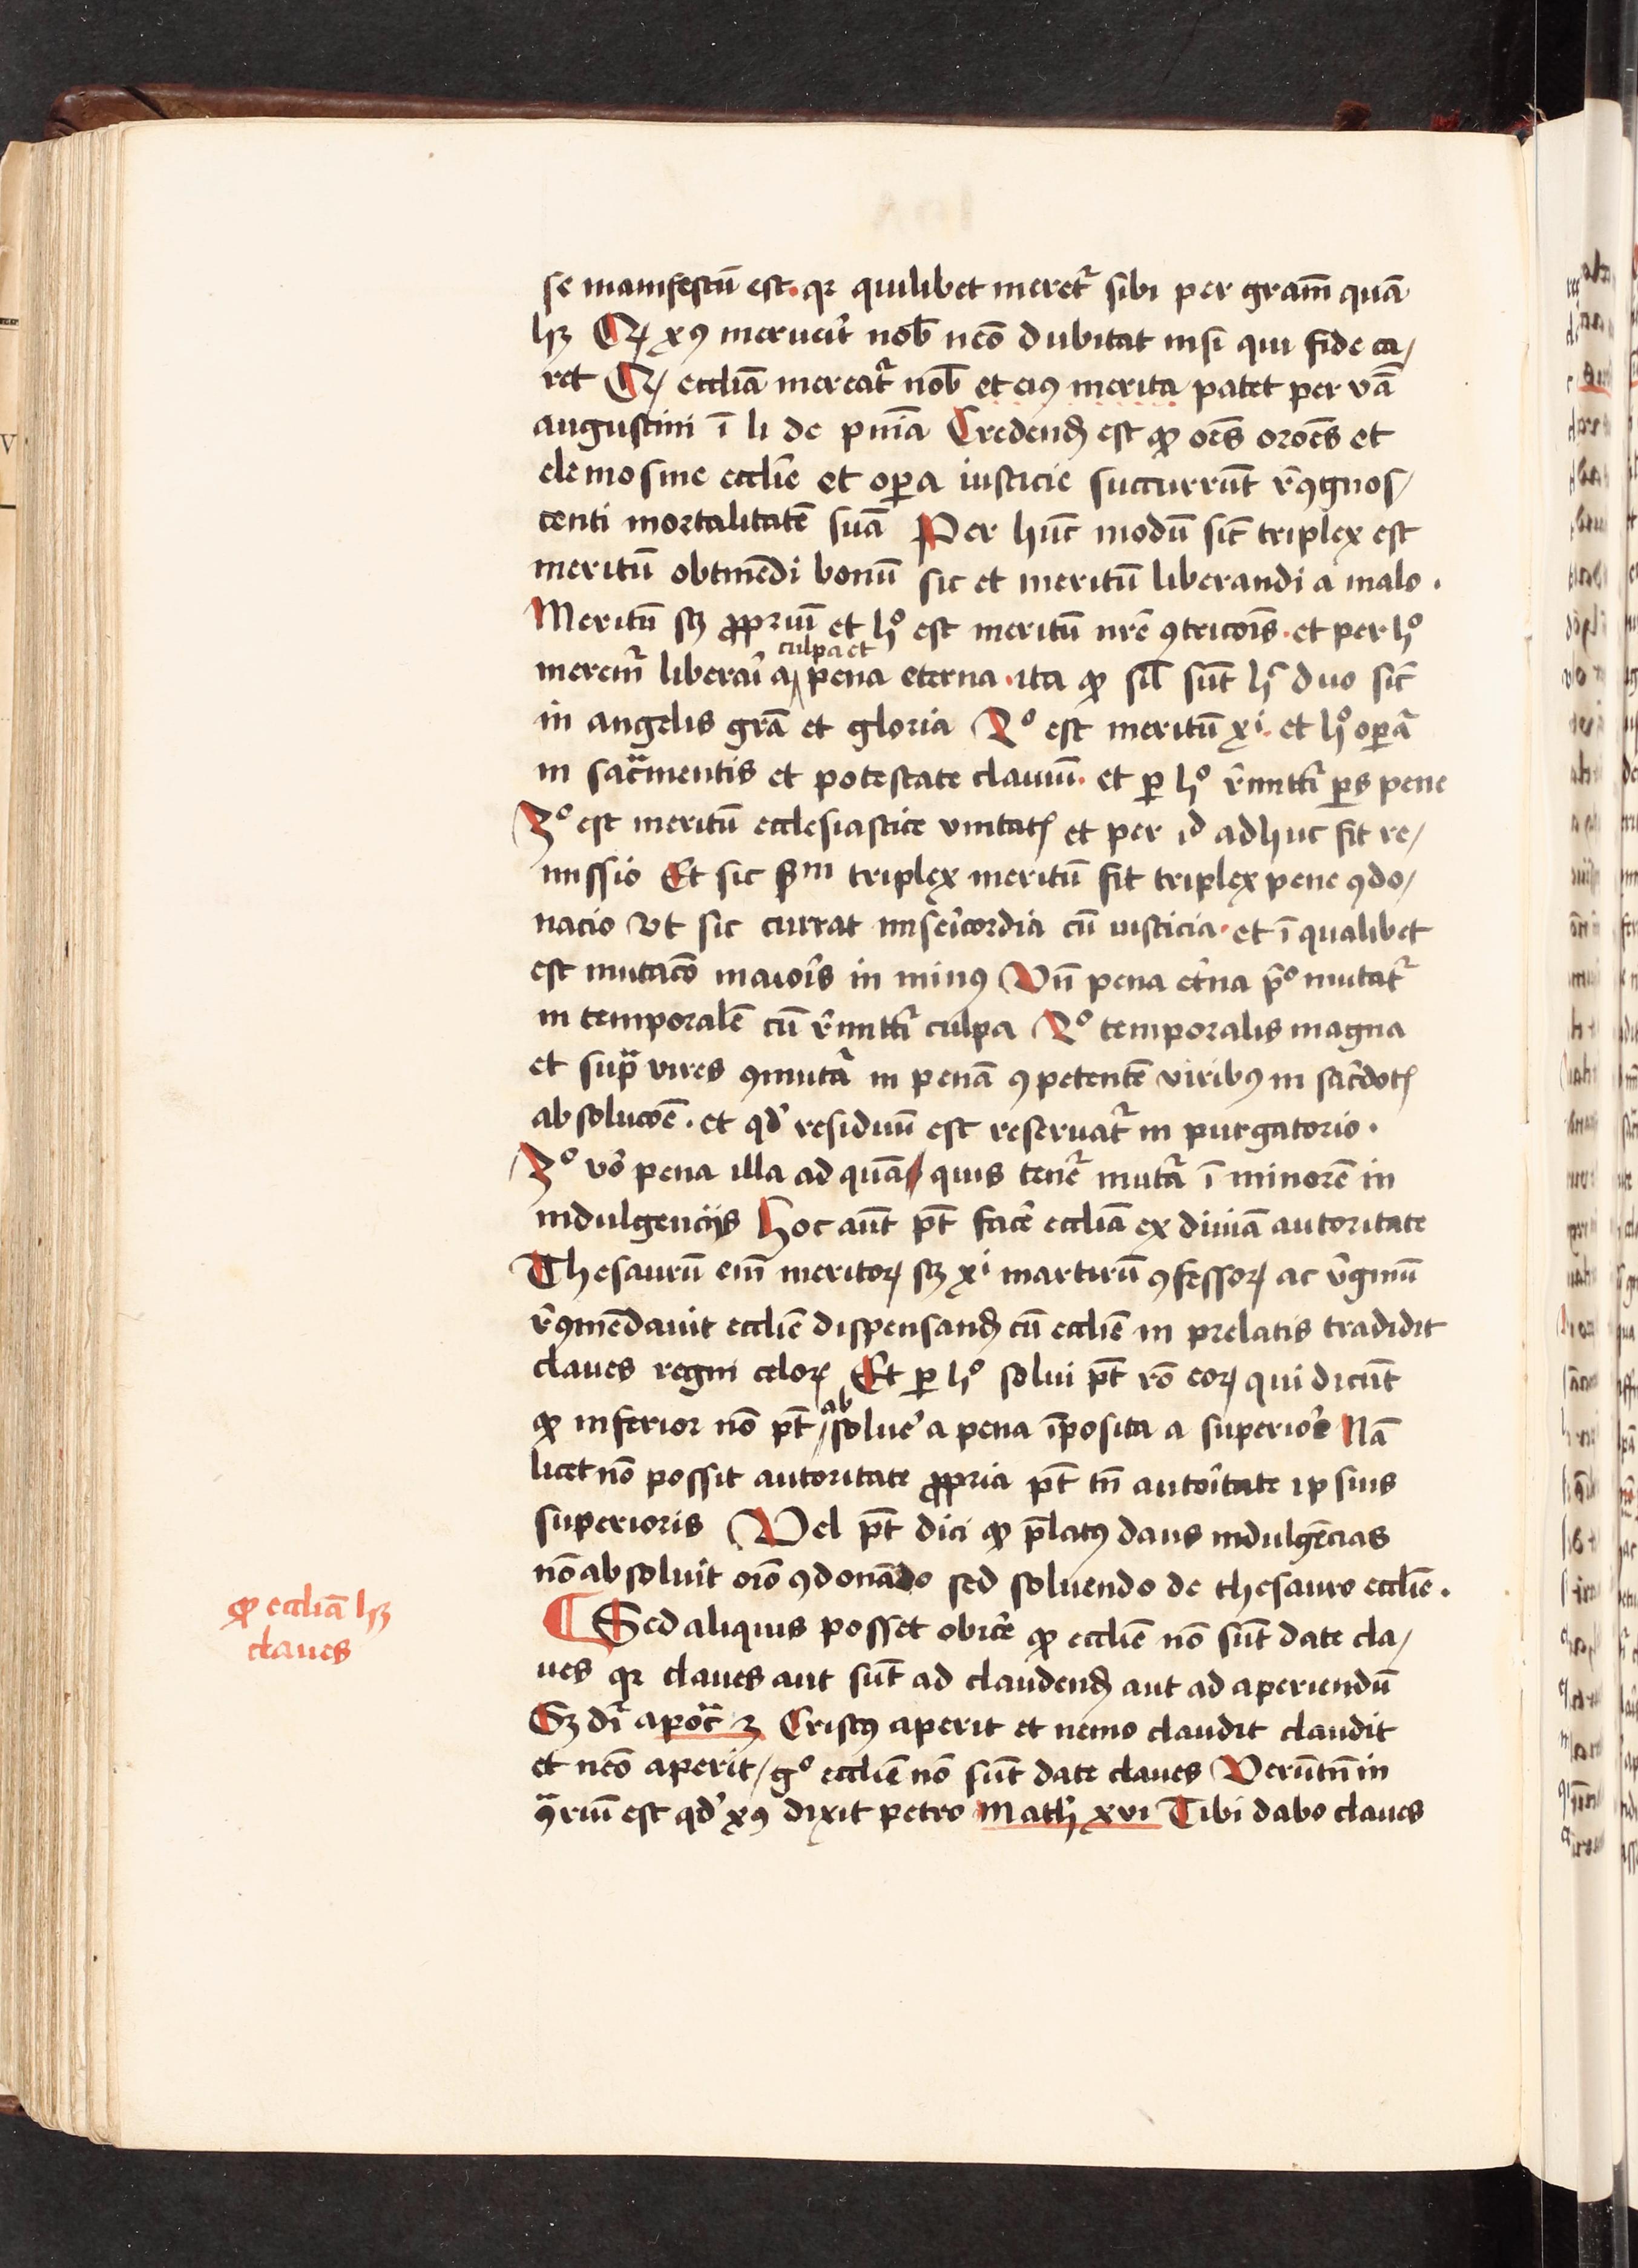 se manifestū est. qꝛ quilibet meret᷑ sibi per gram̄ quā
hꝫ Qꝫ xꝰ meruerit nob̄ neō dubitat nisi qui fide ca/
ret Qꝫ eccliā mereat᷑ nob̄ et eiꝰ merita patet per vā
augustini ī li de pn̄ia Credend̄ est ꝙ oēs oroēs et
elemosine ecclīe et oꝑa iusticie succurrūt rꝯgnos/
centi mortalitatē suā Per hūc modū sic̄ triplex est
meritū obtinēdi bonū sic et meritū liberandi a malo .
Meritū sꝫ ꝓpriū et hͦ est meritū nrē ꝯtricoīs . et per hͦ
culpa et
merem᷑ liberari a pena eterna . ita ꝙ sil̄ sūt hͥ duo sic̄
in angelis grā et gloria 2ͦ est meritū xͥ . et hͦ oꝑat᷑
in sacͣmentis et potestate clauiū . et ꝑ hͦ rͥmittit᷑ ꝑs pene
3ͦ est meritū ecclesiastice vnitatꝭ et per id adhuc fit re/
missio Et sic ẜm triplex meritū fit triplex pene ꝯdo/
nacio vt sic currat misericordia cū iusticia . et ī qualibet
est mutacō maioris in minꝰ Vn̄ pena et̄na pͦ mutat᷑
in temporalē cū rͥmittit᷑ culpa 2ͦ temporalis magna
et supͣ vires ꝯmutat᷑ in penā ꝯpetentē viribꝰ in sacͥdotꝭ
absolucōe . et qd̓ residuū est reseruat᷑ in purgatorio .
3ͦ vō pena illa ad quā quis tenet᷑ mutat᷑ ī minorē in
indulgencijs Hoc aūt pt̄ facē eccliā ex diuīa autoritate
Thesaurū em̄ meritoꝝ sꝫ xͥ martirū ꝯfessoꝝ ac vͥginū
rꝯmēdauit ecclīe dispensand̄ cū ecclīe in prelatis tradidit
claues regni celoꝝ Et ꝑ hͦ solui pt̄ rō eoꝝ qui dicūt
ab
ꝙ inferior nō pt̄ soluē a pena īposita a superiore Nā
licet nō possit autoritate ꝓpria pt̄ tn̄ autoritate ipsius
superioris Vel pt̄ dici ꝙ p̄latꝰ dans indulgēcias
nō absoluit oīo ꝯdonādo sed soluendo de thesauro ecclīe .
ꝙ eccliā hꝫ
claues
Sed aliquis posset obicē ꝙ ecclīe nō sūt date cla/
ues qꝛ claues aut sūt ad claudend̄ aut ad aperiendū
Sꝫ dr̄ apoc̄ 3 Cristꝰ aperit et nemo claudit claudit
et neō aperit / gͦ ecclīe nō sūt date claues Verūtn̄ in
ꝯͣriū est qd̓ xꝰ dixit petro Math̄ xvi Tibi dabo claues